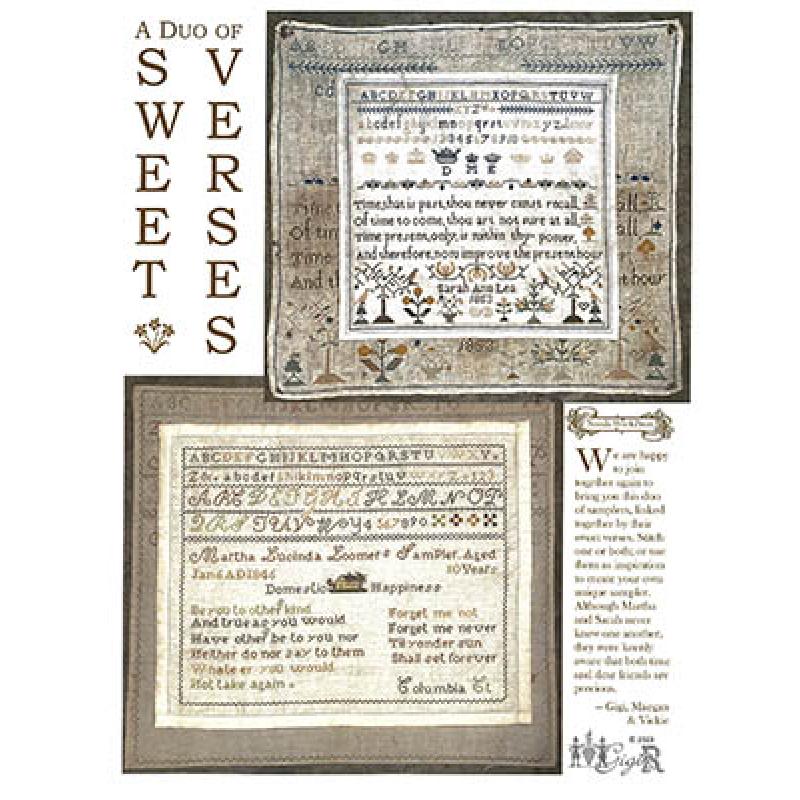 A DUO OF
SWEET
VERSES
AB GH LO UVW
cd
ABCDEFGHIJKLMNOPQRSTUVW
XYZ
abcdefghijklmnopqrstuvwxyz
12345678910
D M K
Time, that is past, thou never canst recall,
Of time to come, thou art not sure at all,
Time present, only, is within thy power,
And therefore, now improve the present hour
Sarah Ann Lea
1853
ABCDEFGHIJKLMNOPQRSTUVWXY
Z& abcdefghiklmnopqrstuvwxyz123
ABCDEFGHIJKLMNOP
QRSTUVWXYZ 4567890
Martha Lucinda Loomer's Sampler Aged
Jan 6 AD 1846 10 Years
Domestic Happiness
Be you to other kind
And true as you would
Have other be to you nor
Neither do nor say to them
Whate er you would
Not take again.
Forget me not
Forget me never
Til yonder sun
Shall set forever
Columbia Ct
We are happy
to join
together again to
bring you this duo
of samplers, linked
together by their
sweet verses. Stitch
one or both, or use
them as inspiration
to create your own
unique sampler.
Although Martha
and Sarah never
knew one another,
they were keenly
aware that both time
and dear friends are
precious.
~ Gigi, Maegan
& Vickie
Gigi R